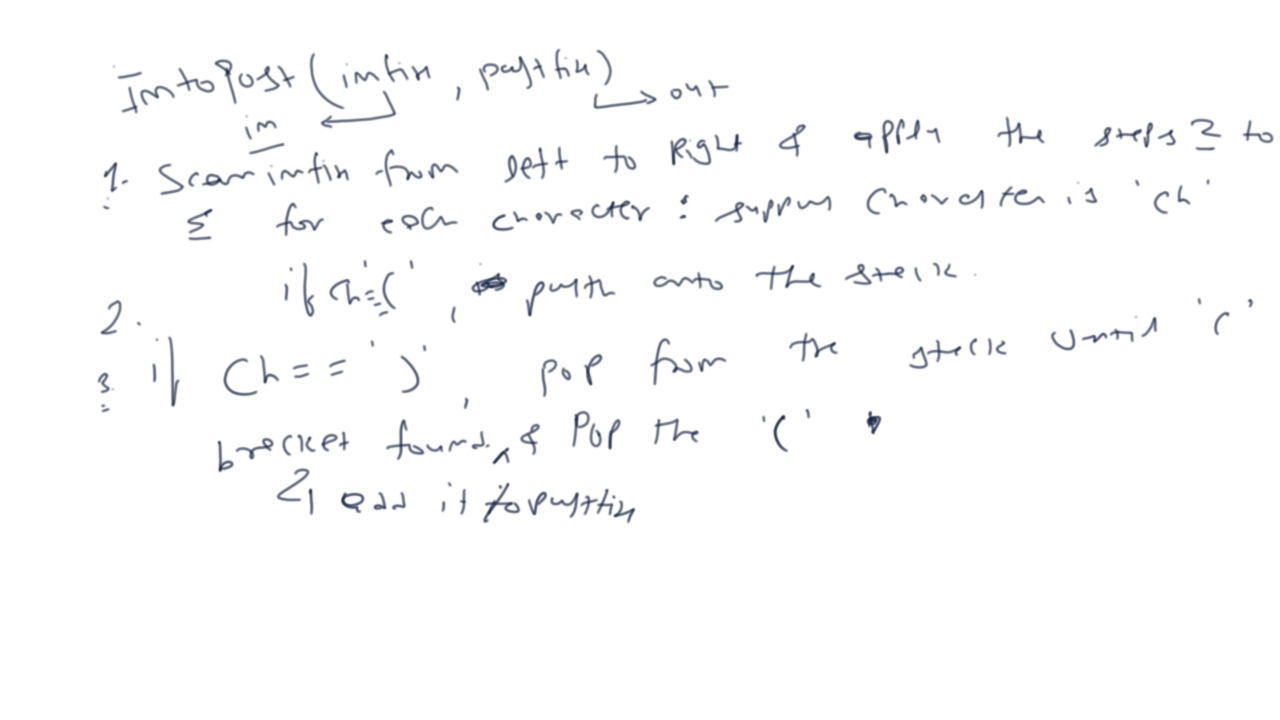 IntoPost (infix, postfix)
in
out
1. Scan infix from left to Right & apply the steps 2 to
5 for each character : suppose Character is 'ch'
2. if ch=='(', push onto the stack.
3. if Ch == ')', pop from the stack until '('
bracket found, & Pop the '('
add it to postfix